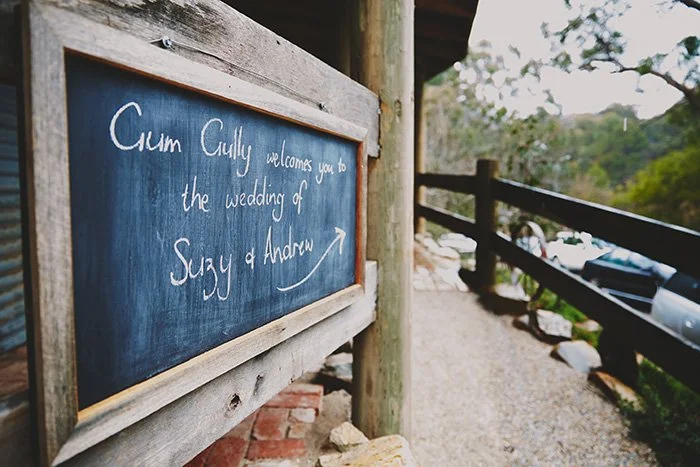 Gum Gully welcomes you to
the wedding of
Suzy & Andrew